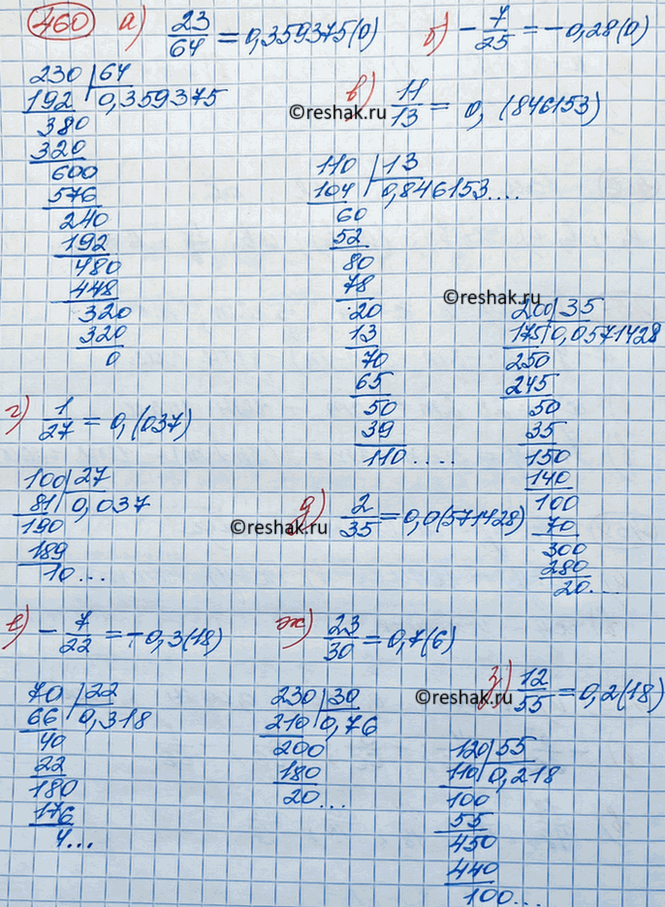 460 а) 23/64 = 0,359375(0) б) - 7/25 = -0,28(0)
230 | 64
192 0,359375
380
320
600
576
240
192
480
448
320
320
0
в) 11/13 = 0,(846153)
©reshak.ru
110 | 13
104 0,846153....
60
52
80
78
20
13
70
65
50
39
110....
©reshak.ru
200 | 35
175 0,0571428
250
245
50
35
150
140
100
70
300
280
20...
г) 1/27 = 0,(037)
100 | 27
81 0,037
190
189
10...
©reshak.ru
д) 2/35 = 0,0(571428)
е) - 7/22 = -0,3(18)
70 | 22
66 0,318
40
22
180
176
4...
ж) 23/30 = 0,7(6)
230 | 30
210 0,76
200
180
20...
©reshak.ru
з) 12/55 = 0,2(18)
120 | 55
110 0,218
100
55
450
440
100...